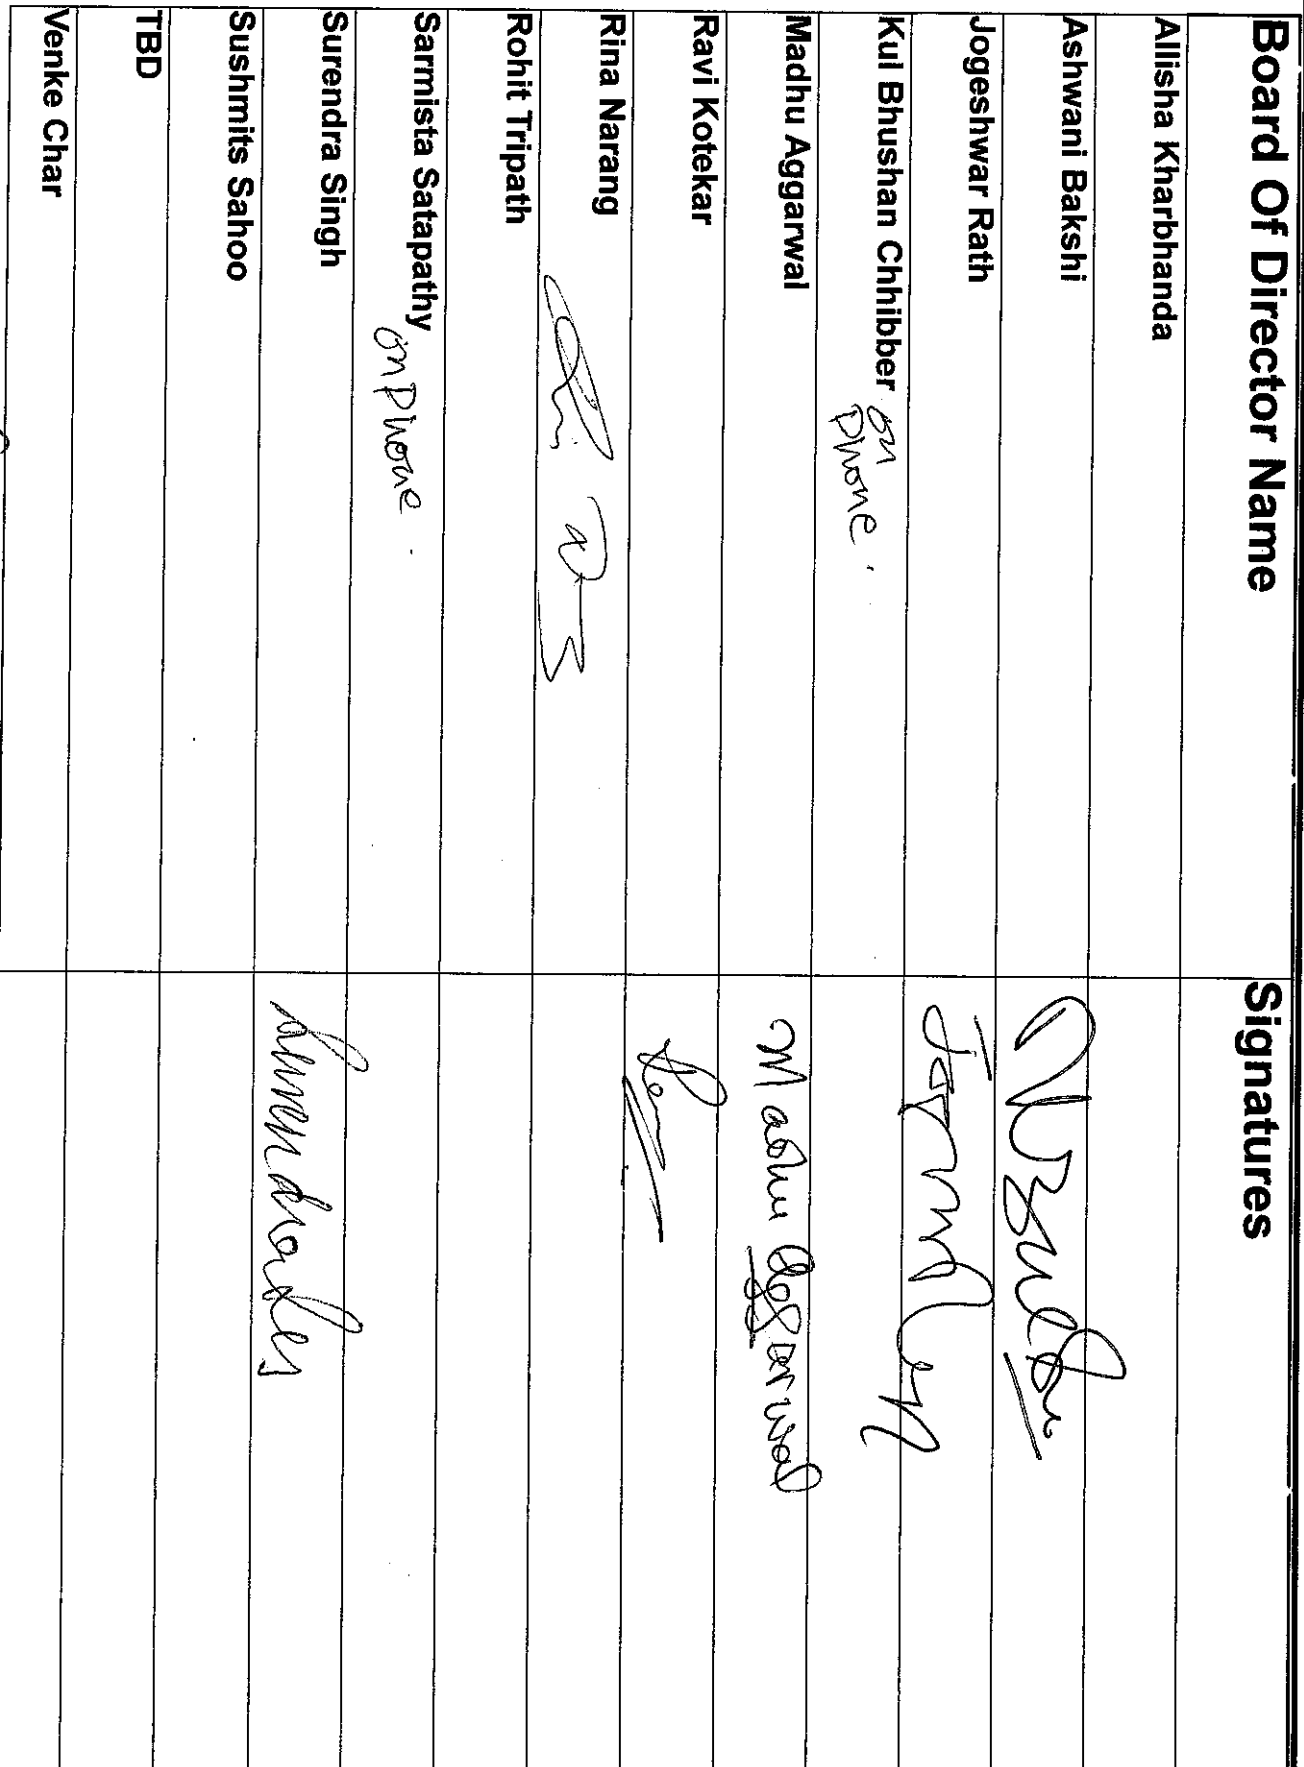 Board Of Director Name Signatures
Allisha Kharbhanda
Ashwani Bakshi
Jogeshwar Rath
Kul Bhushan Chhibber on phone.
Madhu Aggarwal Madhu Aggarwal
Ravi Kotekar
Rina Narang
Rohit Tripath
Sarmista Satapathy on phone.
Surendra Singh
Sushmits Sahoo
TBD
Venke Char